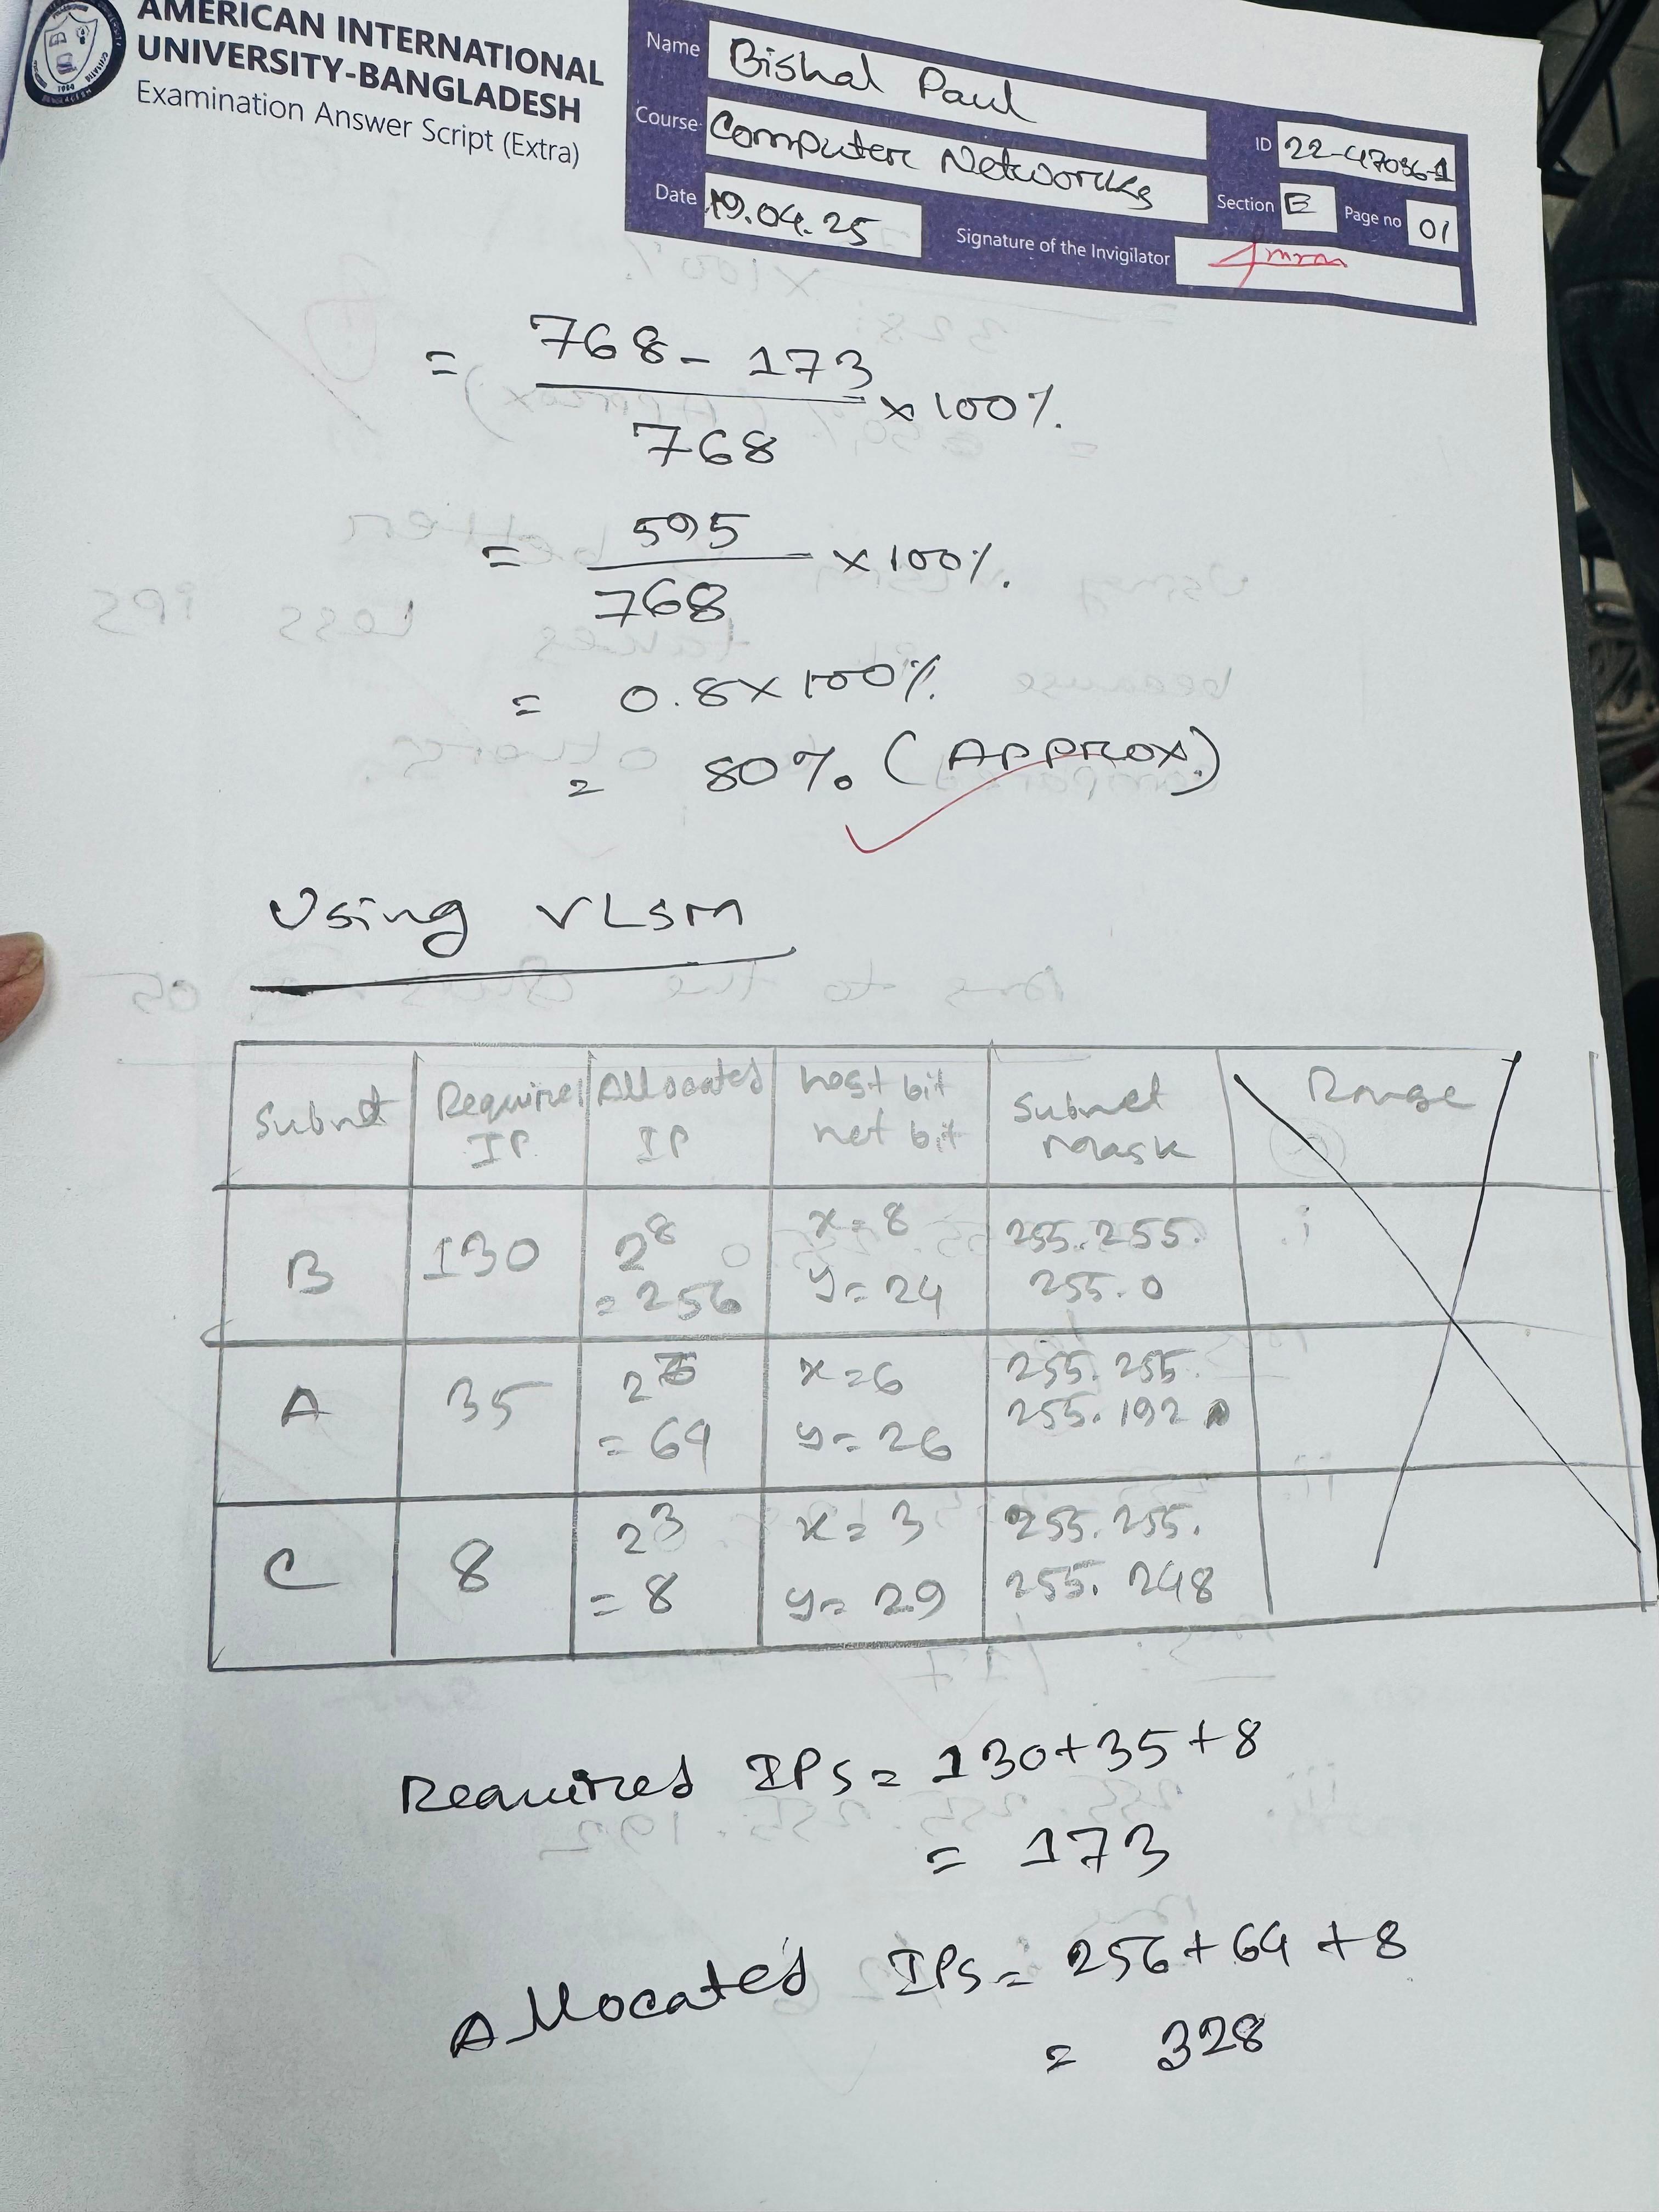 AMERICAN INTERNATIONAL
UNIVERSITY-BANGLADESH
Examination Answer Script (Extra)
Name Bishal Paul
Course Computer Networks
ID 22-47036-1
Date 19.04.25
Section E Page no 01
Signature of the Invigilator
= 768 - 173 / 768 × 100%.
= 595 / 768 × 100%.
= 0.8 × 100%.
= 80% (APPROX.)
Using VLSM
Subnet Required IP Allocated IP host bit net bit Subnet Mask Range
B 130 2^8 = 256 x = 8 y = 24 255.255.255.0
A 35 2^6 = 64 x = 6 y = 26 255.255.255.192
C 8 2^3 = 8 x = 3 y = 29 255.255.255.248
Required IPs = 130 + 35 + 8
= 173
Allocated IPs = 256 + 64 + 8
= 328